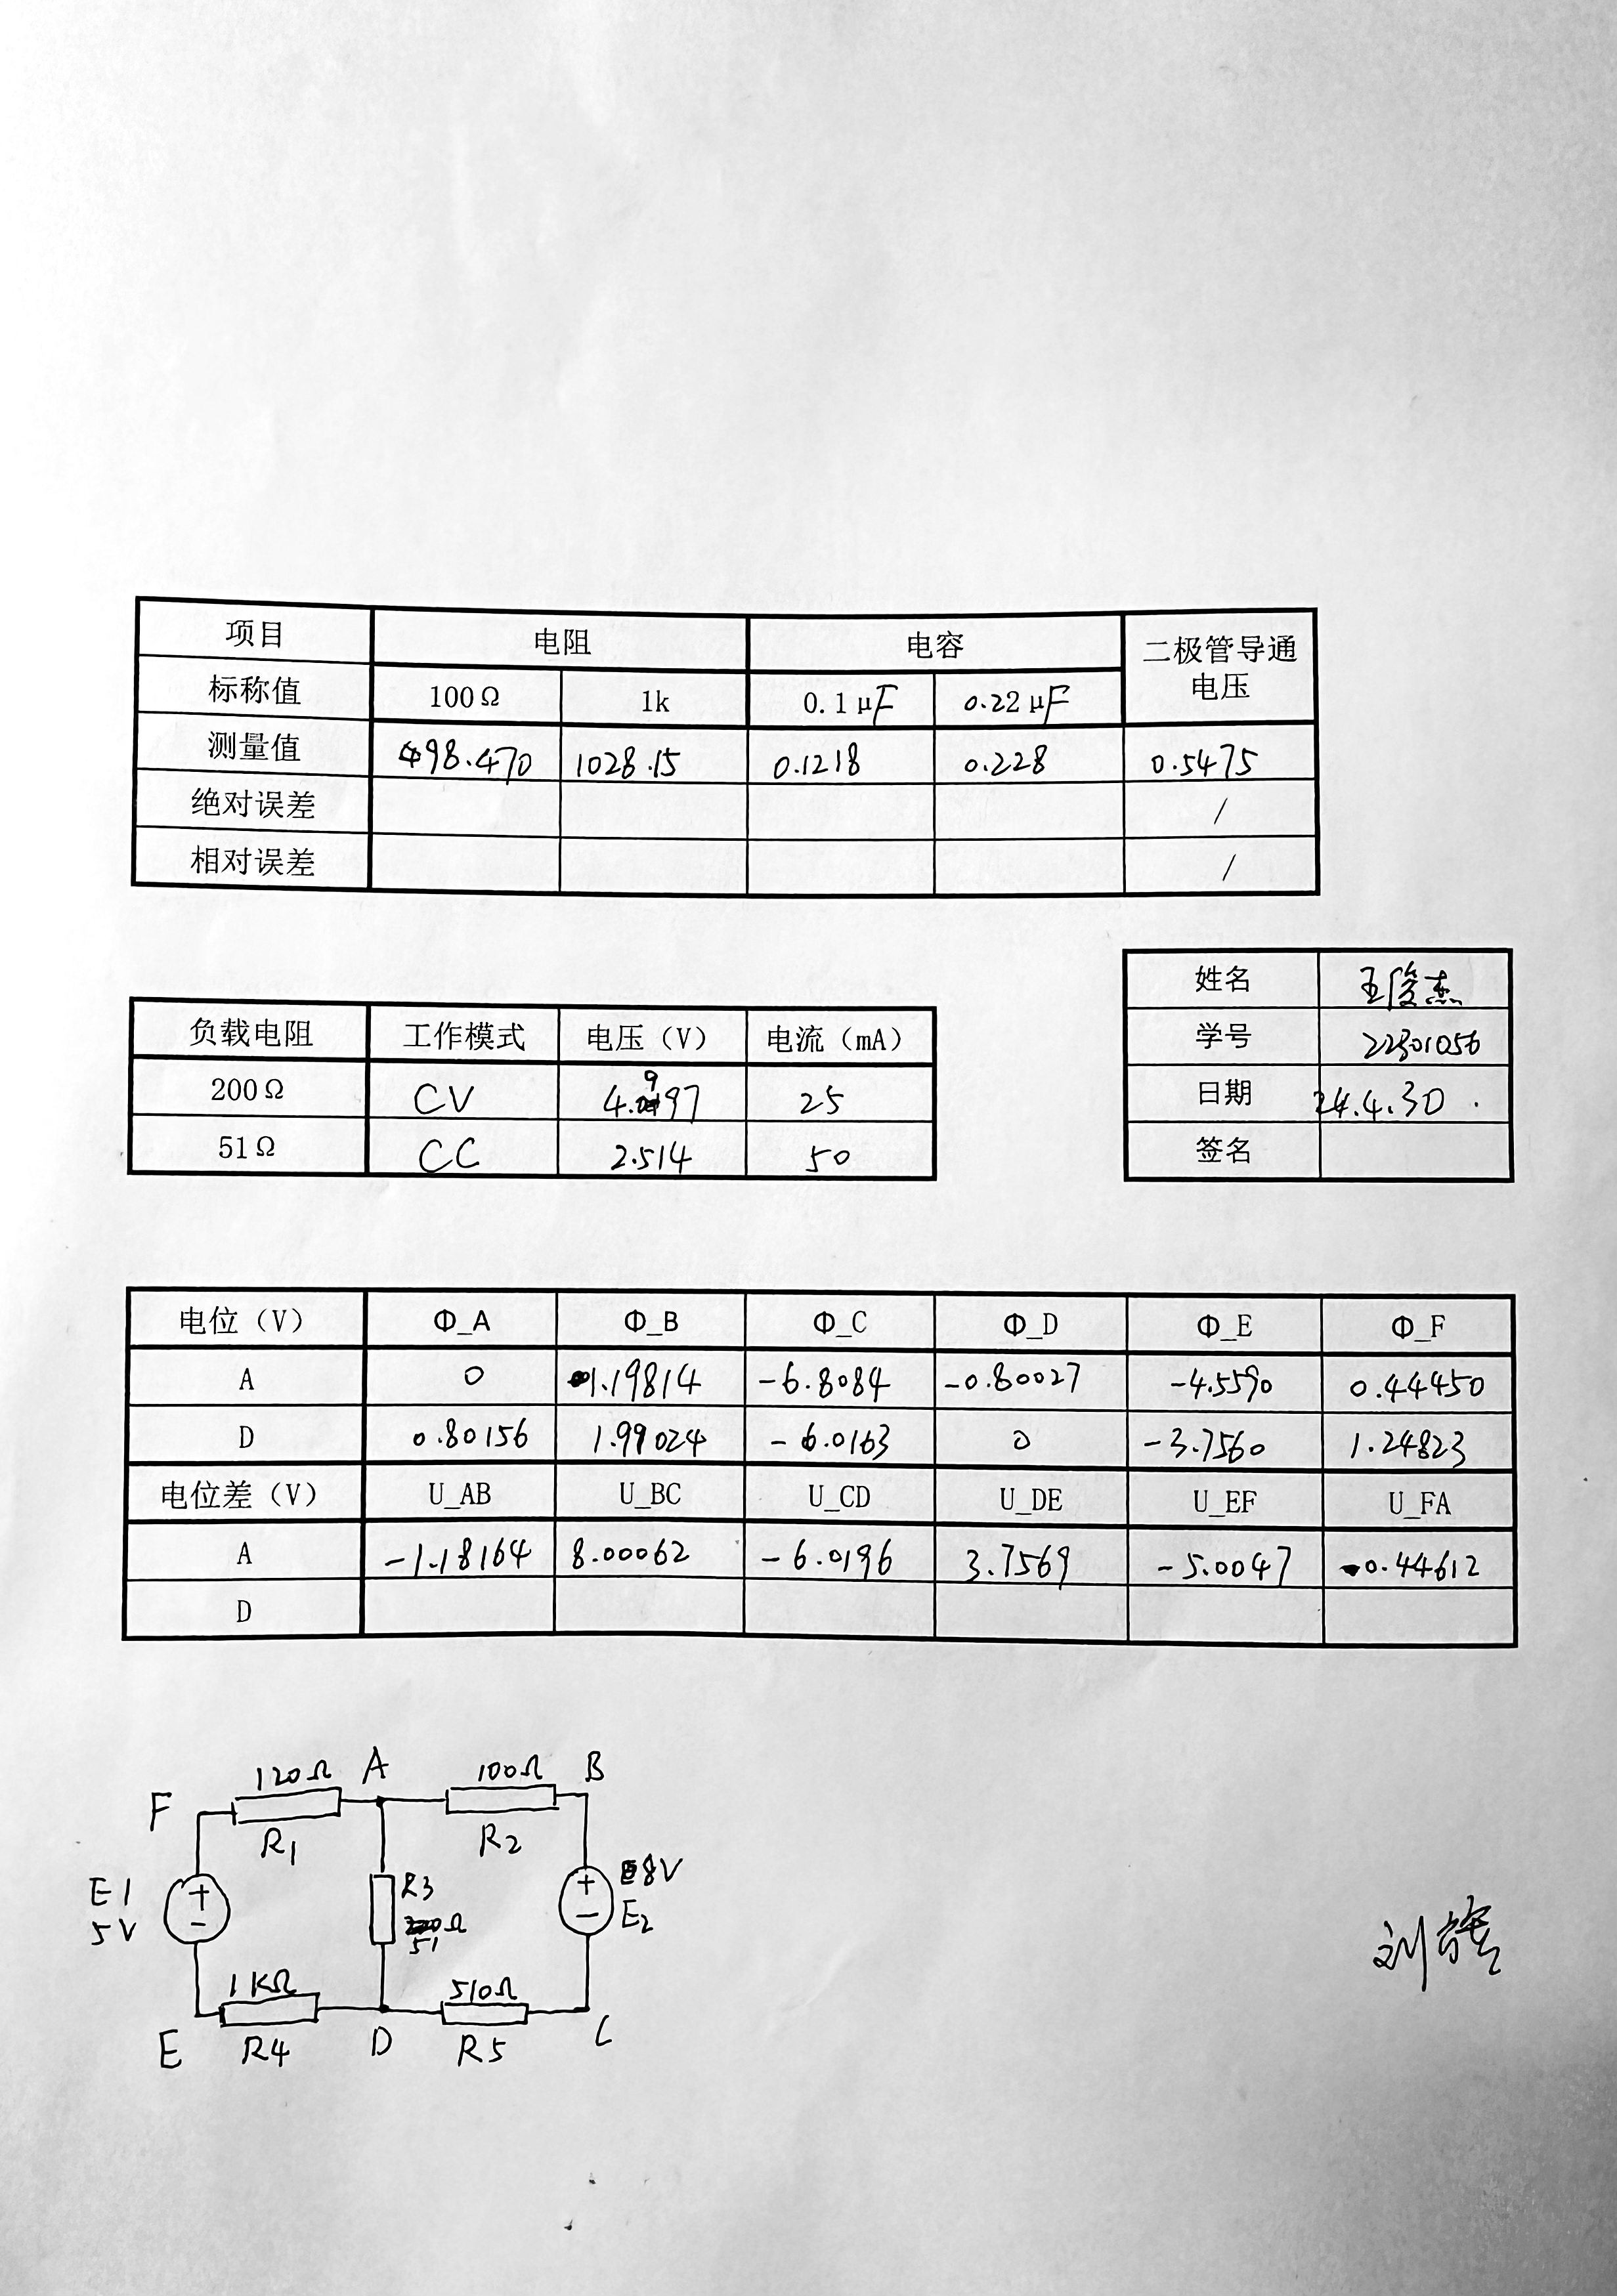 项目 电阻 电容 二极管导通电压
标称值 100Ω 1k 0.1μF 0.22μF
测量值 98.470 1028.15 0.1218 0.228 0.5475
绝对误差 /
相对误差 /
姓名 王俊杰
学号 22301056
日期 24.4.30.
签名
负载电阻 工作模式 电压（V） 电流（mA）
200Ω CV 4.997 25
51Ω CC 2.514 50
电位（V） Φ_A Φ_B Φ_C Φ_D Φ_E Φ_F
A 0 1.19814 -6.8084 -0.80027 -4.5590 0.44450
D 0.80156 1.99024 -6.0163 0 -3.7560 1.24823
电位差（V） U_AB U_BC U_CD U_DE U_EF U_FA
A -1.18164 8.00062 -6.0196 3.7569 -5.0047 0.44612
D
F 120Ω A 100Ω B
R1 R2
E1 5V + - R3 51Ω + - 8V E2
1KΩ 510Ω
E R4 D R5 C